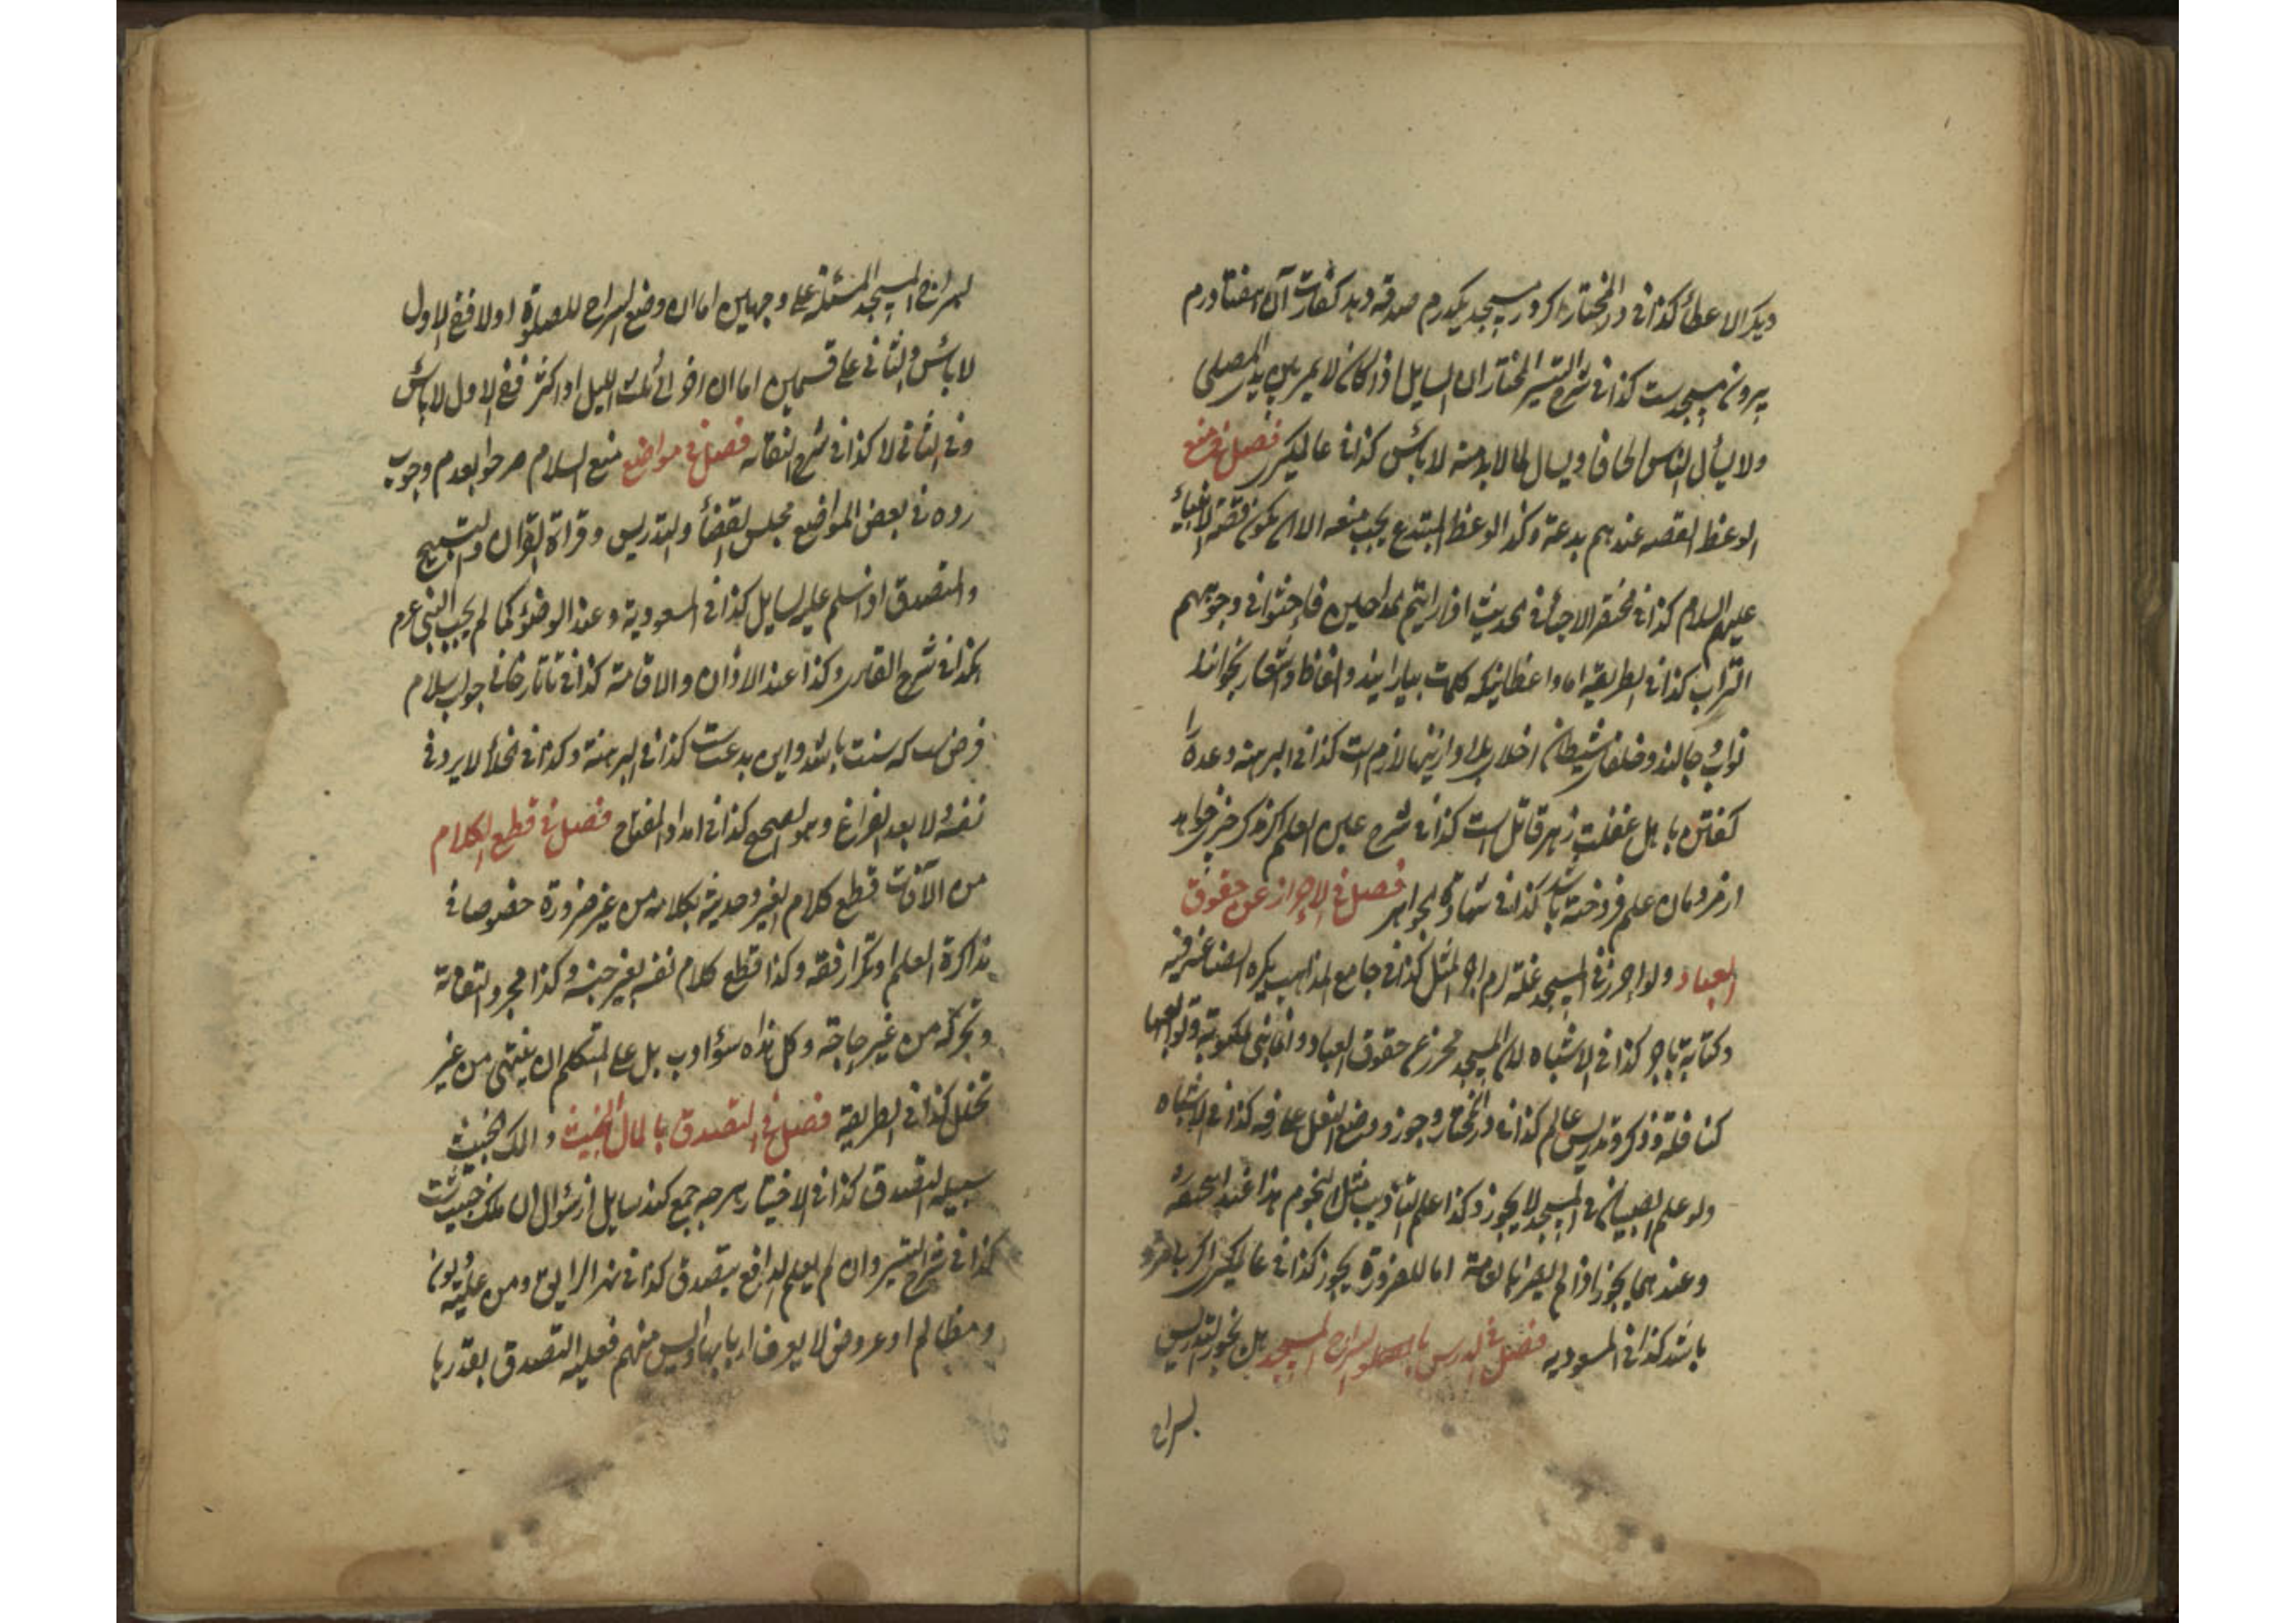 ویکره الاعطاء کذا فی در المختار اگر در مسجد یکدرم صدقه دهد کفارت آن هفتاد درم
بیرون مسجد ست کذا فی شرح المختار ان السایل اذا کان لا یمر بین یدی المصلی
ولا یسأل الناس الحافا ویسال لما لا بد منه لا باس کذا فی عالمگیری فصل فی منع
الوعظ القصه عندهم بدعة وکذا الوعظ المبتدع یجب منعه الا ان یکون قصة الانبیاء
علیهم السلام کذا فی مختصر الاحیاء فی الحدیث اذا رایتم المداحین فاحثوا فی وجوههم
التراب کذا فی الطریقه اما واعظانیکه کلمات بیارایند والفاظ واشعار بخوانند
نواب دجالند وخلفای شیطان لازم است کذا فی البرهنه وعده را
گفتن با اهل غفلت زهر قاتل است کذا فی شرح عین العلم
از فرومان علم فروخته باشد کذا فی الجواهر فصل فی الاحراز عن حقوق
العباد ولو احرز فی المسجد غلة لزم اجر المثل کذا فی جامع المذاهب یکره الصناعة فیه
وکتابة باجر کذا فی الاشباه لان المسجد محرز عن حقوق العباد وانما بنی للمکتوبة وتوابعها
کنافلة وذکر وتدریس عالم کذا فی در المختار وجوز وضع النعل علی رفه کذا فی الاشباه
ولو علم الصبیان فی المسجد لا یجوز وکذا علم التأدیب مثل النجوم هذا عند ابی حنیفه
وعندهما یجوز اذا لم یضر بالعامة اما للضرورة یجوز کذا فی عالمگیری
باشد کذا فی المسعودیه فصل فی الدرس بسراج المسجد هل یجوز التدریس
بسراج
بسراج المسجد المسئلة علی وجهین اما ان وضع السراج للصلوة اولا ففی الاول
لا باس والثانی علی قسمین اما ان اخر الی ثلث اللیل او اکثر ففی الاول لا باس
وفی الثانی لا کذا فی شرح النقایه فصل فی مواضع منع السلام صرحوا بعدم وجوب
رده فی بعض المواضع مجلس القضاء والتدریس وقراءة القرآن والتسبیح
والتصدق اذا سلم علیه السایل کذا فی المسعودیه وعند الوضوء کما لم یجب النبی عم
کذا فی شرح القاری وکذا عند الاذان والاقامة کذا فی تاتارخانی جواب سلام
فرض ست که سنت باشد واین بدعت ست کذا فی البرهنة وکذا فی الخلاء لا یرد فی
نفسه ولا بعد الفراغ وهو الصحیح کذا فی امداد المفتاح فصل فی قطع الکلام
من الآفات قطع کلام الغیر وحدیثه بکلامه من غیر ضرورة خصوصا فی
مذاکرة العلم او تکرار فقه وکذا قطع کلام نفسه بغیر جنسه وکذا مجرد التفاتة
وتحرکه من غیر حاجة وکل هذا سوء ادب بل علی المتکلم ان ینتهی من غیر
تخلل کذا فی الطریقه فصل فی التصدق بالمال الخبیث والملک الخبیث
سبیله التصدق کذا فی الاختیار هرچه جمع کند سایل از سؤال آن ملک خبیث ست
کذا فی شرح وان لم یعلم الدافع یتصدق کذا فی نهر الرایق ومن علیه دیون
ومظالم او عروض لا یعرف اربابها وایس منهم فعلیه التصدق بقدرها